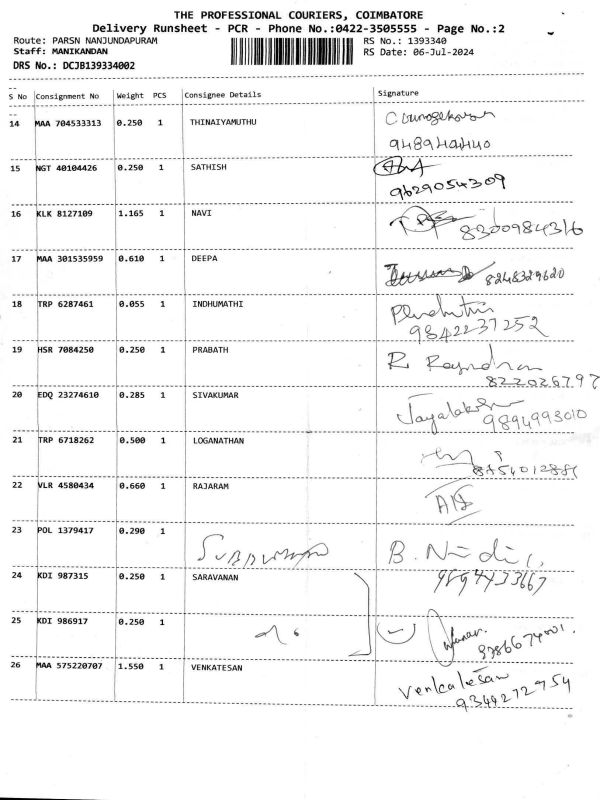 THE PROFESSIONAL COURIERS, COIMBATORE
Delivery Runsheet - PCR - Phone No.:0422-3505555 - Page No.:2
Route: PARSN NANJUNDAPURAM
RS No.: 1393340
Staff: MANIKANDAN
RS Date: 06-Jul-2024
DRS No.: DCJB139334002
S No Consignment No Weight PCS Consignee Details Signature
14 MAA 704533313 0.250 1 THINAIYAMUTHU
9489494440
15 NGT 40104426 0.250 1 SATHISH
9629054309
16 KLK 8127109 1.165 1 NAVI
8300984316
17 MAA 301535959 0.610 1 DEEPA
8248329620
18 TRP 6287461 0.055 1 INDHUMATHI
9842237252
19 HSR 7084250 0.250 1 PRABATH
R. Rajendran
8220267797
20 EDQ 23274610 0.285 1 SIVAKUMAR
9894993010
21 TRP 6718262 0.500 1 LOGANATHAN
22 VLR 4580434 0.660 1 RAJARAM
23 POL 1379417 0.290 1
24 KDI 987315 0.250 1 SARAVANAN
25 KDI 986917 0.250 1
26 MAA 575220707 1.550 1 VENKATESAN
Venkatesan
9349272754